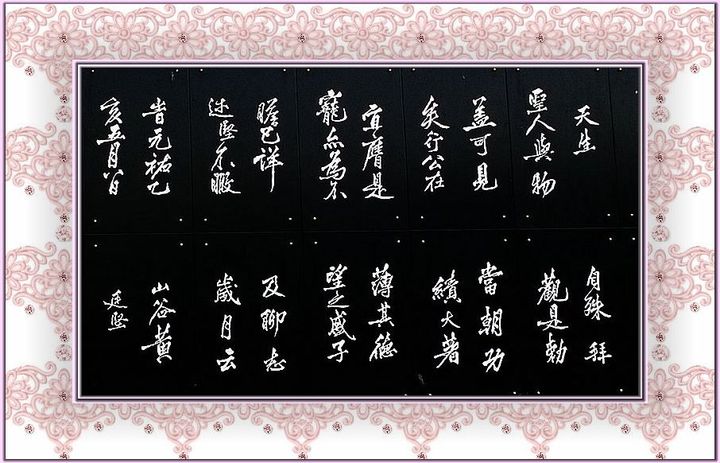 天生
聖人與物
自殊拜
觀是勅
蓋可見
矣行公在
當朝功
績大著
宜膺是
寵亦為不
薄其德
望之盛子
瞻已詳
述堅不暇
及聊志
歲月云
旹元祐乙
亥五月八日
山谷黃
庭堅